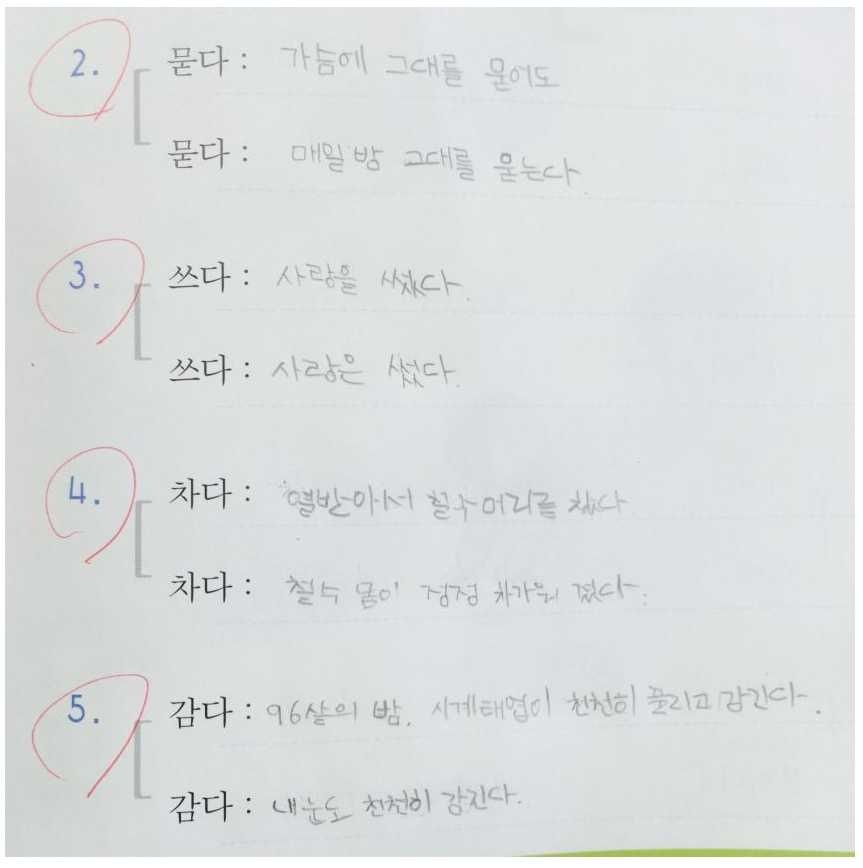 2. 묻다 : 가슴에 그대를 묻어도
묻다 : 매일 밤 그대를 묻는다.
3. 쓰다 : 사랑을 썼다.
쓰다 : 사랑은 썼다.
4. 차다 : 열받아서 철수 머리를 찼다
차다 : 철수 몸이 점점 차가워 졌다.
5. 감다 : 96살의 밤, 시계태엽이 천천히 풀리고 감긴다.
감다 : 내 눈도 천천히 감긴다.